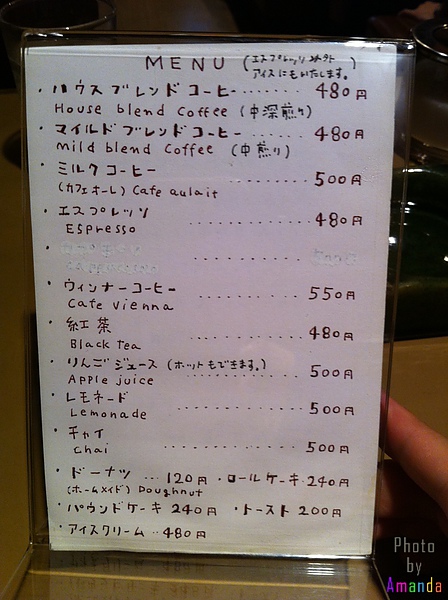 MENU (エスプレッソ以外アイスにもいたします。)
・ハウスブレンドコーヒー……… 480円
House blend Coffee (中深煎り)
・マイルドブレンドコーヒー……… 480円
mild blend Coffee (中煎り)
・ミルクコーヒー
(カフェオーレ) Cafe aulait ……… 500円
・エスプレッソ
Espresso ……… 480円
・ウィンナーコーヒー
Cafe Vienna ……… 550円
・紅茶
Black tea ……… 480円
・りんごジュース (ホットもできます。)
Apple juice ……… 500円
・レモネード
Lemonade ……… 500円
・チャイ
Chai ……… 500円
・ドーナツ … 120円 ・ロールケーキ・240円
(ホームメイド) Doughnut
・パウンドケーキ 240円 ・トースト 200円
・アイスクリーム … 480円
Photo
by
Amanda